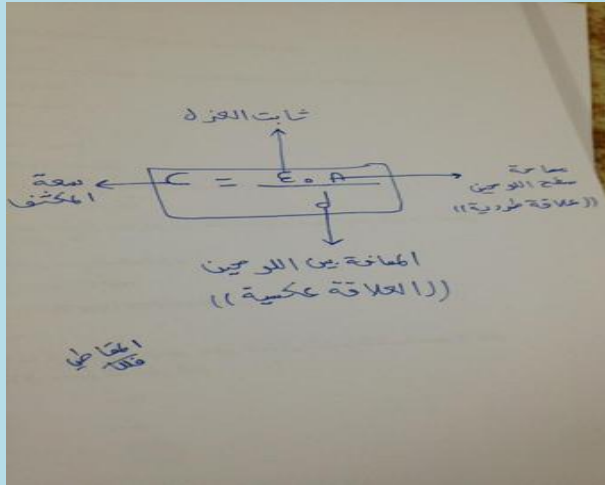 ثابت العزل
سعة المكثف
C = ε∘ A / d
مساحة
سطح اللوحين
((علاقة طردية))
المسافة بين اللوحين
((العلاقة عكسية))
المقاطي